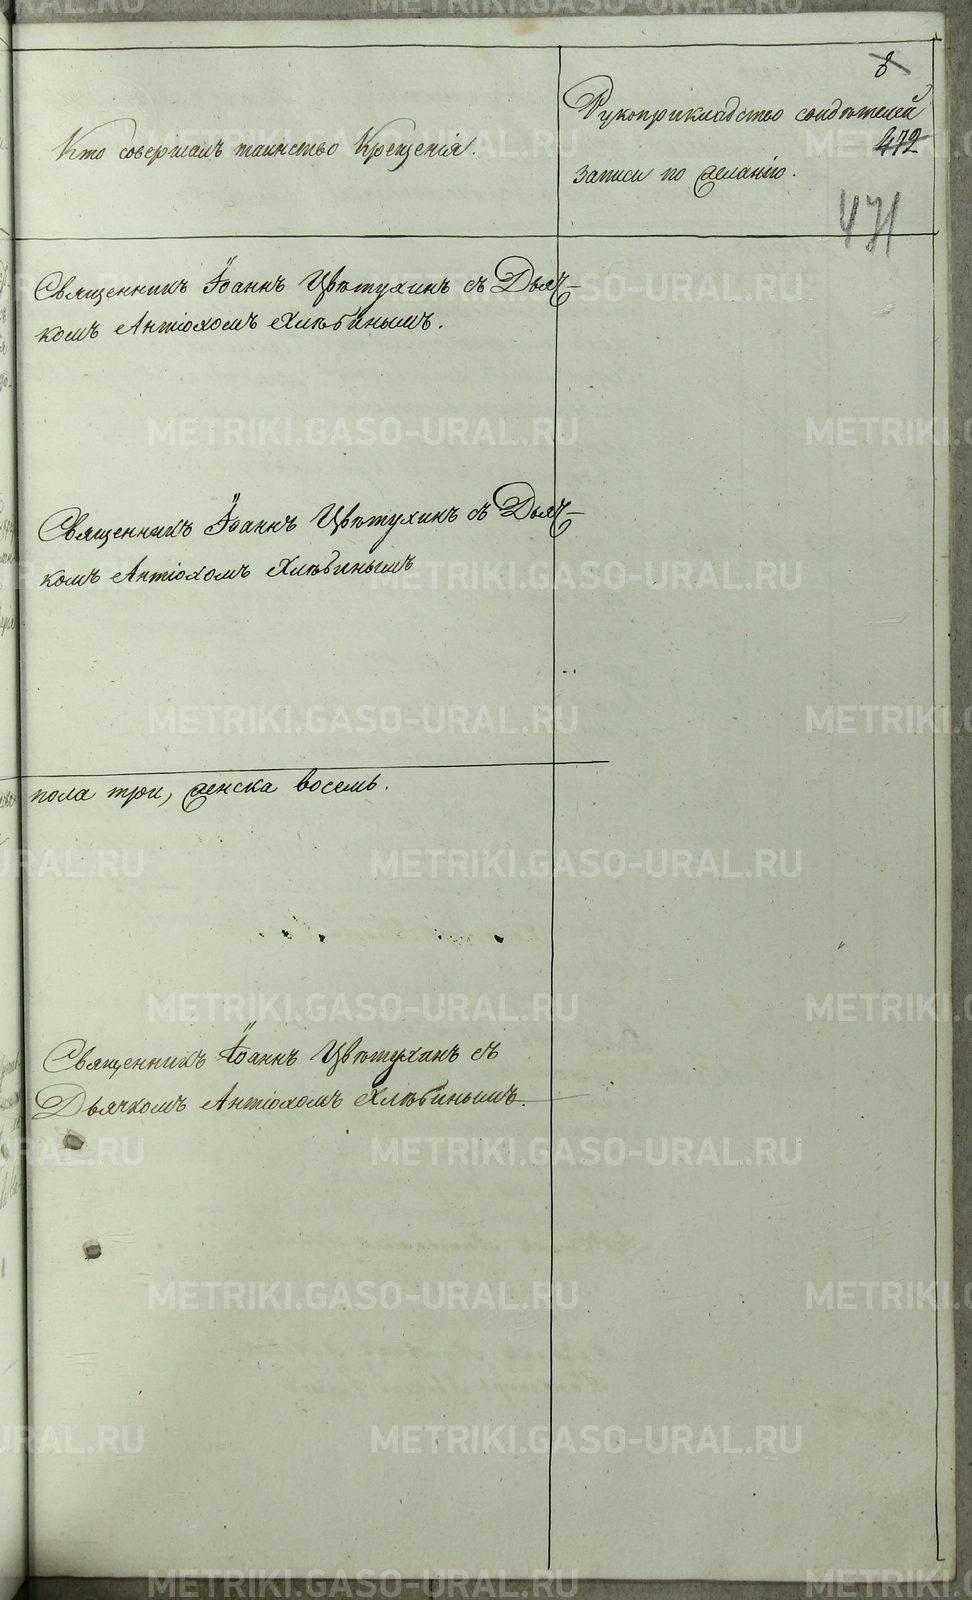 8
Рукоприкладство свидѣтелей
472
записи по желанію.
471
Кто совершалъ таинство Крещенія.
Священникъ Іоаннъ Цвѣтухинъ съ Дьяч-
комъ Антіохомъ Хлѣбинымъ.
Священникъ Іоаннъ Цвѣтухинъ съ Дьяч-
комъ Антіохомъ Хлѣбинымъ
пола три, женска восемь.
Священникъ Іоаннъ Цвѣтухинъ съ
Дьячкомъ Антіохомъ Хлѣбинымъ.
METRIKI.GASO-URAL.RU